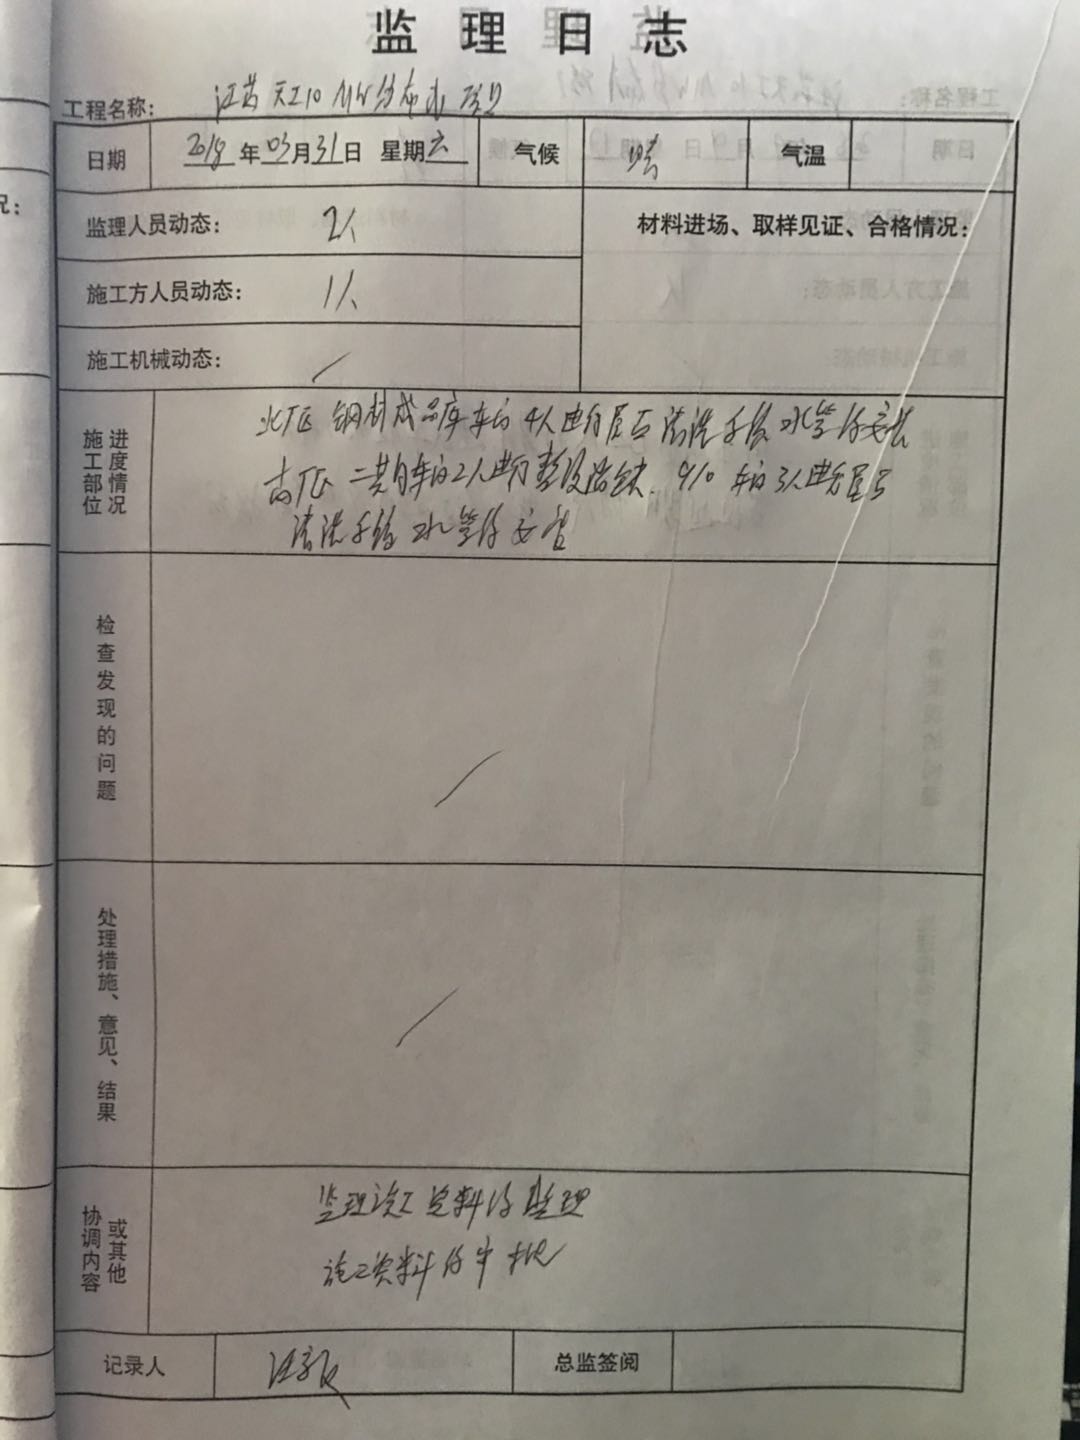 监理日志
工程名称: 江苏天工10MW分布式项目
日期 2018年03月31日 星期六 气候 晴 气温
监理人员动态: 2人 材料进场、取样见证、合格情况:
施工方人员动态: 1人
施工机械动态: /
施工部位进度情况
北厂区 钢材成品库车间4人进行屋面清洗系统水管的安装
南厂区 车间2人进行 消缺. 9/10车间3人进行屋面
清洗系统水管的安装
检查发现的问题 /
处理措施、意见、结果 /
协调内容或其他
监理 资料的整理
施工资料的审批
记录人 总监签阅
况: